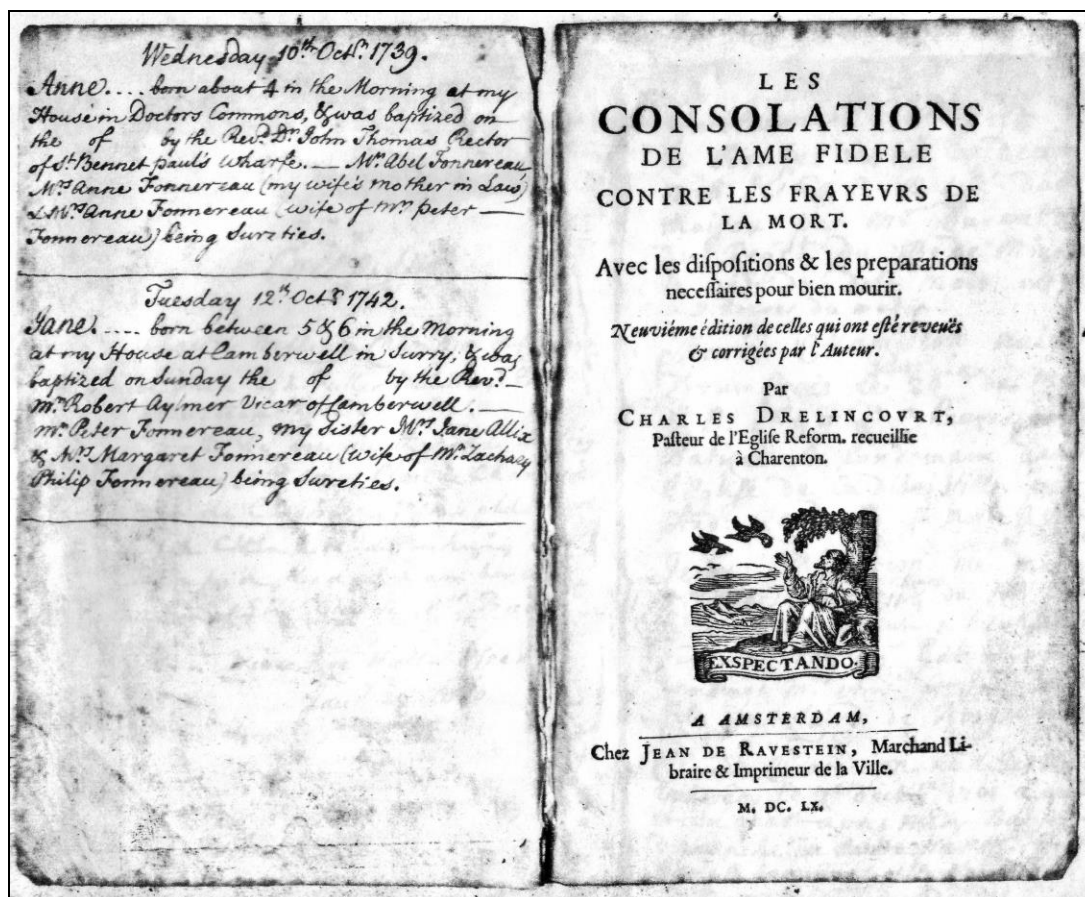 Wednesday 10th Octr. 1739.
Anne.... born about 4 in the Morning at my
House in Doctors Commons, & was baptized on
the of by the Revd. Dr. John Thomas Rector
of St. Bennet paul's wharfe. — Mr. Abel Fonnereau,
Mrs. Anne Fonnereau (my wife's mother in Law)
& Mrs. Anne Fonnereau (wife of Mr. peter —
Fonnereau) being Sureties.
Tuesday 12th Octr. 1742.
Jane. .... born between 5 & 6 in the Morning
at my House at Camberwell in Surry; & was
baptized on Sunday the of by the Revd. —
Mr. Robert Aylmer Vicar of Camberwell. —
Mr. Peter Fonnereau, my Sister Mrs. Jane Allix
& Mrs. Margaret Fonnereau (wife of Mr. Zachary
Philip Fonnereau) being Sureties.
LES
CONSOLATIONS
DE L'AME FIDELE
CONTRE LES FRAYEVRS DE
LA MORT.
Avec les diſpoſitions & les preparations
neceſſaires pour bien mourir.
Neuviéme édition de celles qui ont eſté reveuës
& corrigées par l'Auteur.
Par
CHARLES DRELINCOVRT,
Paſteur de l'Egliſe Reform. recueillie
à Charenton.
EXSPECTANDO.
A AMSTERDAM,
Chez JEAN DE RAVESTEIN, Marchand Li-
braire & Imprimeur de la Ville.
M. DC. LX.